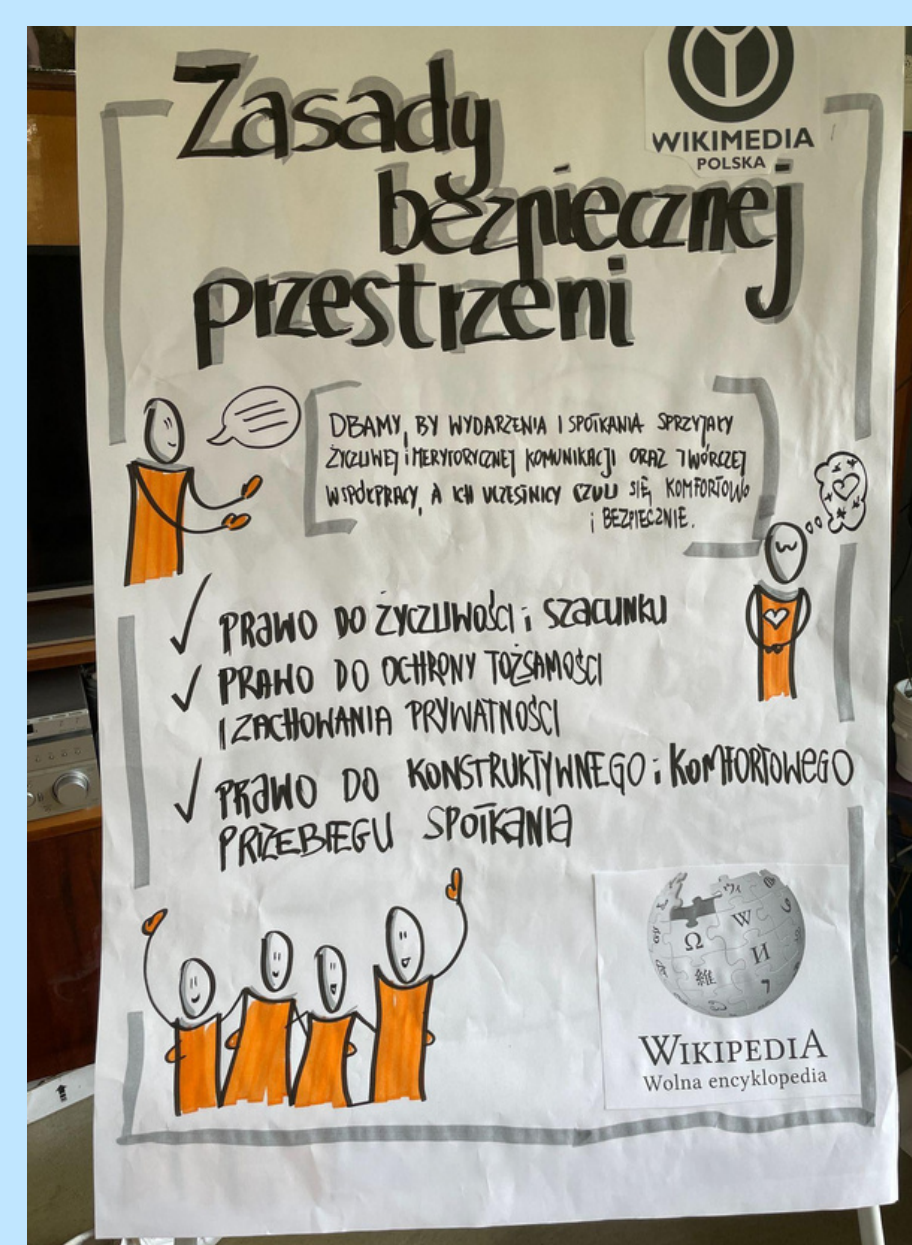 Zasady
bezpiecznej
przestrzeni
WIKIMEDIA
POLSKA
DBAMY, BY WYDARZENIA I SPOTKANIA SPRZYJAŁY
ŻYCZLIWEJ i MERYTORYCZNEJ KOMUNIKACJI ORAZ TWÓRCZEJ
WSPÓŁPRACY, A ICH UCZESTNICY CZULI SIĘ KOMFORTOWO
i BEZPIECZNIE.
✓ PRAWO DO ŻYCZLIWOŚCI i SZACUNKU
✓ PRAWO DO OCHRONY TOŻSAMOŚCI
I ZACHOWANIA PRYWATNOŚCI
✓ PRAWO DO KONSTRUKTYWNEGO i KOMFORTOWEGO
PRZEBIEGU SPOTKANIA
Ω W И
維
WIKIPEDIA
Wolna encyklopedia